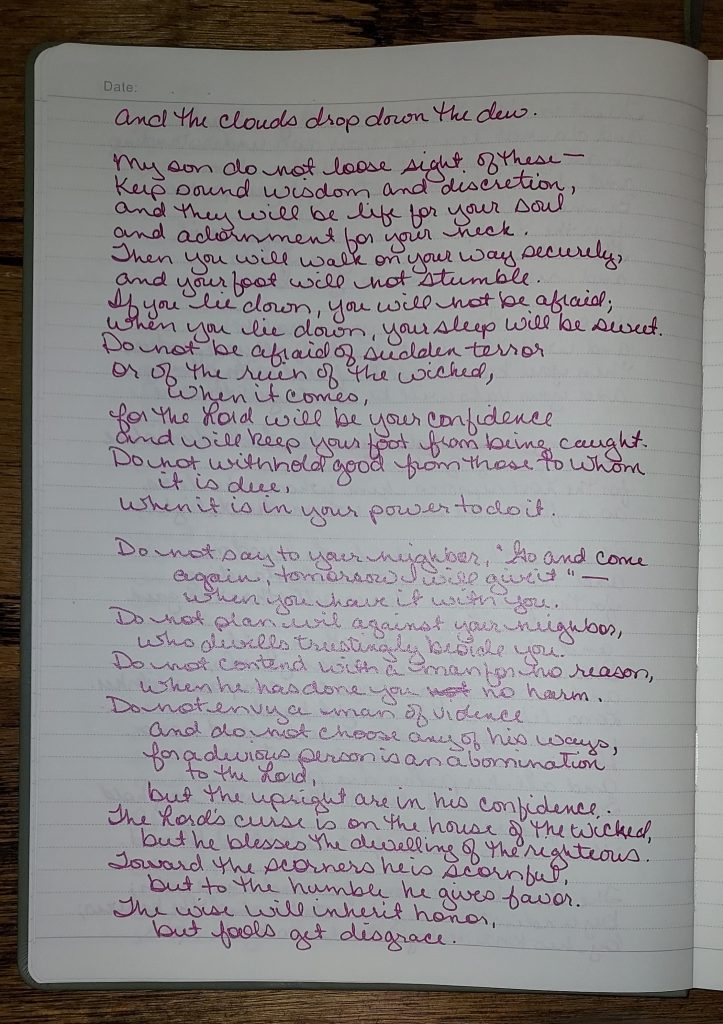 Date:
and the clouds drop down the dew.
My son do not loose sight of these—
Keep sound wisdom and discretion,
and they will be life for your soul
and adornment for your neck.
Then you will walk on your way securely,
and your foot will not stumble.
If you lie down, you will not be afraid;
when you lie down, your sleep will be sweet.
Do not be afraid of sudden terror
or of the ruin of the wicked,
when it comes,
for the Lord will be your confidence
and will keep your foot from being caught.
Do not withhold good from those to whom
it is due,
when it is in your power to do it.
Do not say to your neighbor, "Go and come
again, tomorrow I will give it"—
when you have it with you.
Do not plan evil against your neighbor,
who dwells trustingly beside you.
Do not contend with a man for no reason,
when he has done you not no harm.
Do not envy a man of violence
and do not choose any of his ways,
for a devious person is an abomination
to the Lord,
but the upright are in his confidence.
The Lord's curse is on the house of the wicked,
but he blesses the dwelling of the righteous.
Toward the scorners he is scornful,
but to the humble he gives favor.
The wise will inherit honor,
but fools get disgrace.